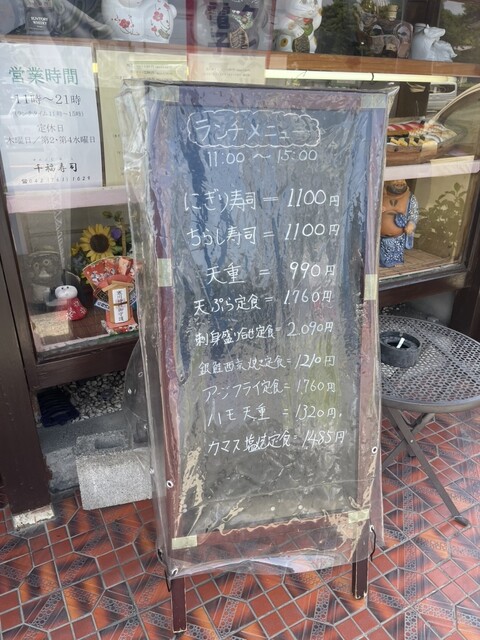 営業時間
11時〜21時
定休日
木曜日／第2・第4水曜日
千福寿司
ランチメニュー
11:00 〜 15:00
にぎり寿司 = 1100円
ちらし寿司 = 1100円
天重 = 990円
天ぷら定食 = 1760円
刺身盛り合せ定食 = 2.090円
銀鮭西京焼き定食 = 1210円
アジフライ定食 = 1.760円
ハモ天重 = 1320円
カマス塩焼定食 = 1485円